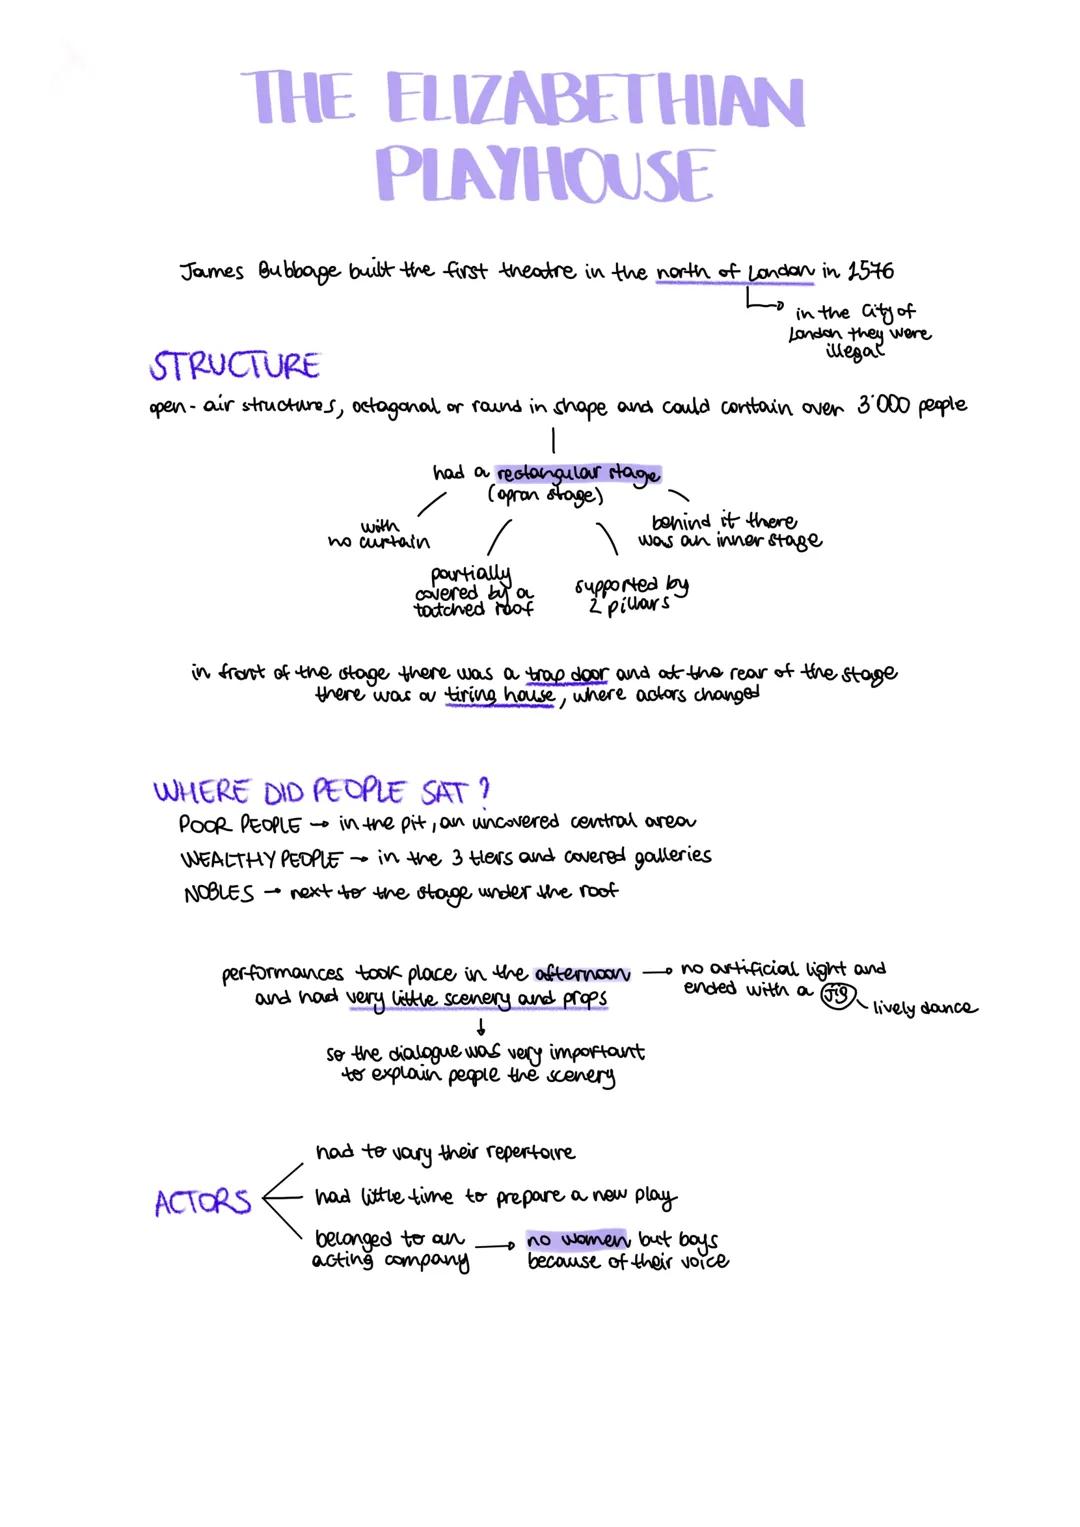 THE ELIZABETHIAN
PLAYHOUSE
James Bubbage built the first theatre in the north of London in 1576
in the City of
London they were
illegal
STRUCTURE
open-air structures, octagonal or round in shape and could contain over 3'000 people
had a rectangular stage
(apron stage)
with
no curtain
partially
covered by a
tatched roof
supported by
2 pillars
behind it there
was an inner stage
in front of the stage there was a trap door and at the rear of the stage
there was a tiring house, where actors changed
WHERE DID PEOPLE SAT?
POOR PEOPLE → in the pit, an uncovered central area
WEALTHY PEOPLE → in the 3 tiers and covered galleries
NOBLES → next to the stage under the roof
performances took place in the afternoon → no artificial light and
and had very little scenery and props
ended with a Jig
lively dance
so the dialogue was very important
to explain people the scenery
ACTORS
had to vary their repertoire
had little time to prepare a new play
belonged to an
acting company → no women but boys
because of their voice